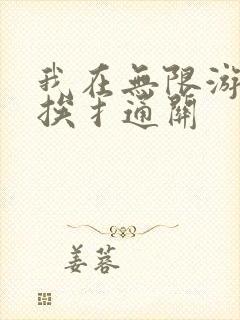 我在無限游
挨扌通關
姜蓉